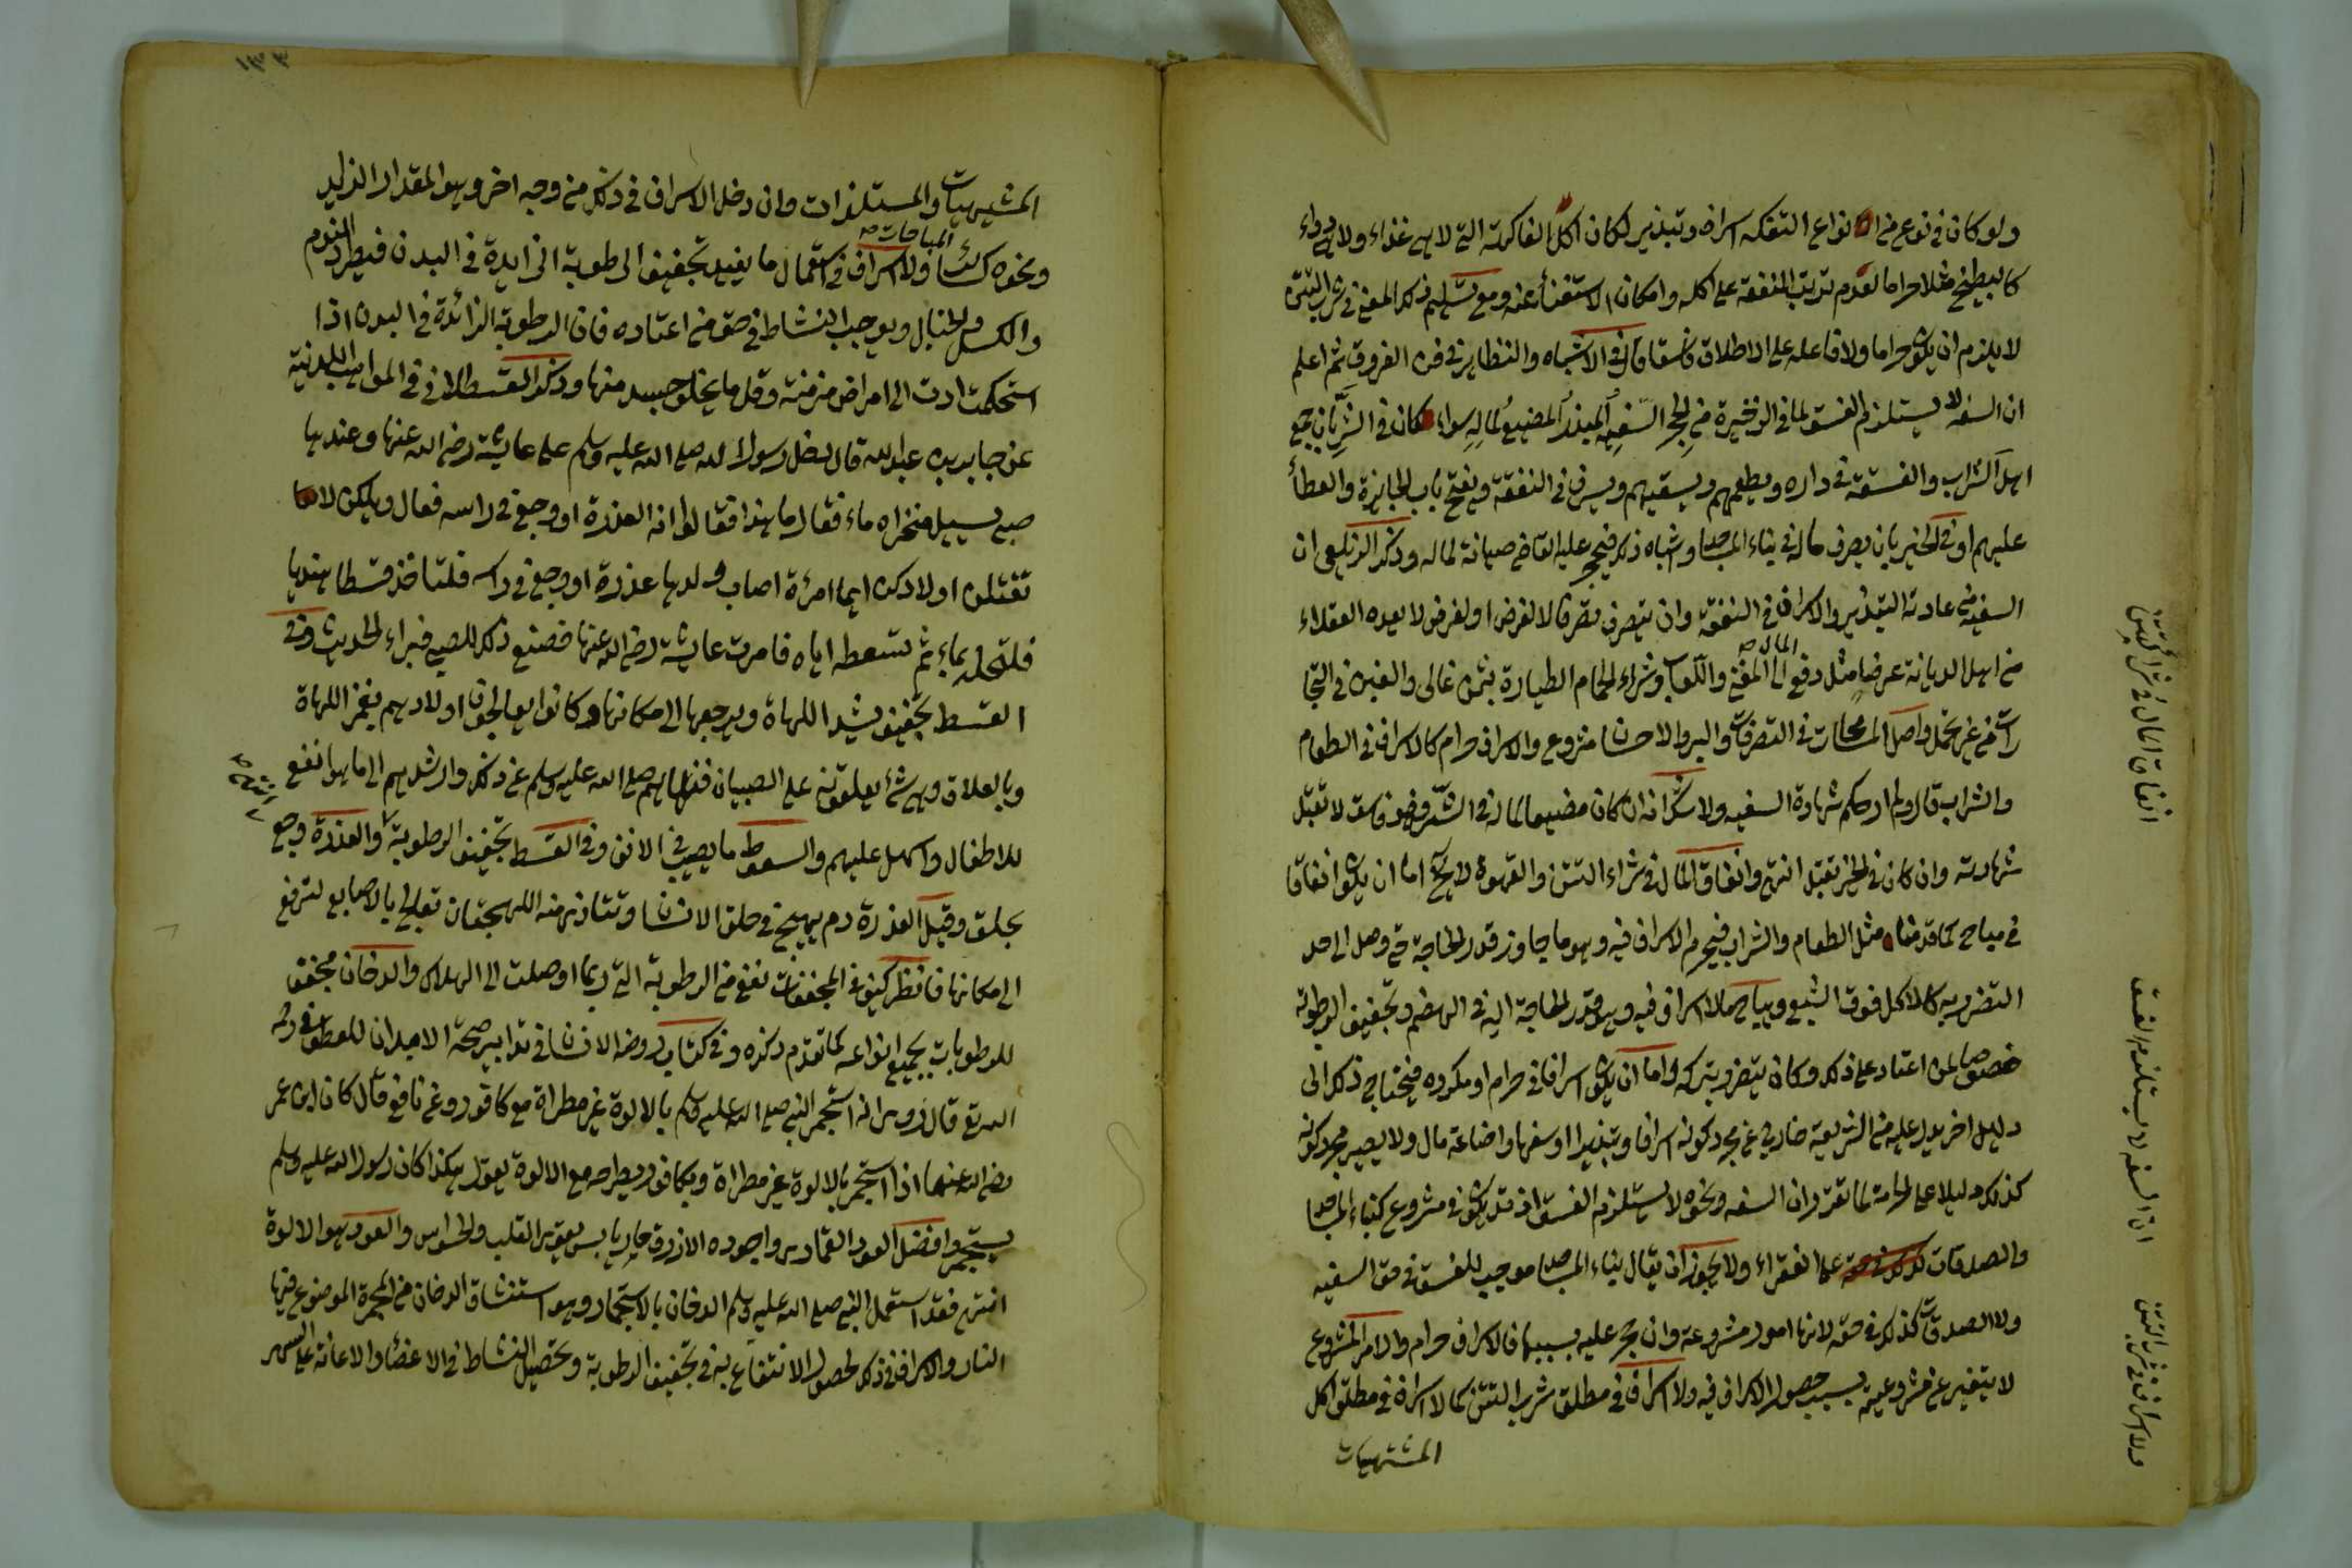 ولو كان في نوع من انواع التفكه اسراف وتبذير لكان اكل الفاكهة التي لا هي غذاء ولا هي دواء
كالبطيخ مثلا حراما لعدم ترتب المنفعة على اكله وامكان الاستغناء عنه ومع تسليم ذلك المعنى في شرب التتن
لا يلزم ان يكون حراما ولا فاعله على الاطلاق فاسقا قال في الاشباه والنظائر في فن الفروق ثم اعلم
ان السفه لا يستلزم الفسق لما في الذخيرة من الحجر السفيه المبذر المضيع لماله سواء كان في الشر بان جمع
اهل الشراب والفسقة في داره ويطعمهم ويسقيهم ويسرف في النفقة ويفتح باب الجائزة والعطاء
عليهم او في الخير بان يصرف ماله في بناء المساجد واشباه ذلك فيحجر عليه القاضي صيانة لماله وذكر الزيلعي ان
السفيه من عادته التبذير والاسراف في النفقة وان يتصرف تصرفا لا لغرض او لغرض لا يعده العقلاء
من اهل الديانة غرضا مثل دفع المال الى المغني واللعاب وشراء الحمام الطيارة بثمن غالي والغبن في التجا
رات من غير محمل واصل المسامحات في التصرفات والبر والاحسان مشروع والاسراف حرام كالاسراف في الطعام
والشراب قال ولم ار حكم شهادة السفيه ولا شك انه ان كان مضيعا لماله في الشر فهو فاسق لا تقبل
شهادته وان كان في الخير تقبل انتهى وانفاق المال في شراء التتن والقهوة لا يخ اما ان يكون انفاقا
في مباح كما قدمنا مثل الطعام والشراب فيحرم الاسراف فيه وهو ما جاوز قدر الحاجة حتى وصل الى حد
التضرر به كالاكل فوق الشبع ويباح ما لا اسراف فيه وهو قدر الحاجة اليه في الهضم وتجفيف الرطوبة
خصوصا لمن اعتاد على ذلك وكان يتضرر بتركه واما ان يكون اسرافا في حرام او مكروه فيحتاج ذلك الى
دليل اخر يدل عليه من الشريعة خارج عن مجرد كونه اسرافا وتبذيرا او سفها واضاعة مال ولا يصير مجرد كونه
كذلك دليلا على الحرمة لما تقرر ان السفه ونحوه لا يستلزم الفسق اذ قد يكون في مشروع كبناء المساجد
والصدقات على الفقراء ولا يجوز ان يقال بناء المساجد موجب للفسق في حق السفيه
ولا الصدقات كذلك في حقه لانها امور مشروعة وان حجر عليه بسببها فالاسراف حرام والامر المشروع
لا يتغير عن مشروعيته بسبب حصول الاسراف فيه ولا اسراف في مطلق شرب التتن كما لا اسراف في مطلق اكل
المشتهيات
انفاق المال في شراء التتن
ان السفه لا يستلزم الفسق
ولا اسراف في شرب التتن
١٣٣
المشتهيات والمستلذات وان دخل الاسراف في ذلك من وجه اخر وهو المقدار الزايد
ونحوه كسائر المباحات ولا اسراف في استعمال ما يفيد تجفيف الرطوبة الزايدة في البدن فيطرد النوم
والكسل والخبال ويوجب النشاط في حق من اعتاده فان الرطوبة الزائدة في البدن اذا
استحكمت ادت الى امراض مزمنة وقل ما يخلو جسد منها وذكر القسطلاني في المواهب اللدنية
عن جابر بن عبد الله قال دخل رسول الله صلى الله عليه وسلم على عايشة رضي الله عنها وعندها
صبي يسيل منخراه ماء فقال ما هذا فقالوا انه العذرة او وجع في راسه فقال ويلكن لا
تقتلن اولادكن ايما امرأة اصاب ولدها عذرة او وجع في راسه فلتاخذ قسطا هنديا
فلتحله بماء ثم تسعطه اياه فامرت عايشة رضي الله عنها فصنع ذلك للصبي فبراء الحديث وفي
القسط تجفيف يشد اللهاة ويرجعها الى مكانها وكانوا يعالجون اولادهم بغمز اللهاة
وبالعلاق وهي شئ يعلقونه على الصبيان فنهاهم صلى الله عليه وسلم عن ذلك وارشدهم الى ما هو انفع
للاطفال واسهل عليهم والسعوط ما يصب في الانف وفي القسط تجفيف الرطوبة والعذرة وجع
بحلق وقيل العذرة دم يهيج في حلق الانسان وتتاذى منه اللهجتان تعالج بالاصابع لترفع
الى مكانها فانظر كيف في المجففات نفع من الرطوبة التي ربما اوصلت الى الهلاك والدخان مجفف
للرطوبات بجميع انواعه كما تقدم ذكره وفي كتاب روضة الانسان في تدابير صحة الابدان للعطوفي
قال روي انه استجمر النبي صلى الله عليه وسلم بالالوة غير مطراة مع كافور وعن نافع قال كان ابن عمر
رضي الله عنهما اذا استجمر بالالوة غير مطراة وبكافور يطرحه مع الالوة يقول هكذا كان رسول الله عليه وسلم
يستجمر وافضل العود القماري واجوده الازرق حار يابس يقوي القلب والحواس والعود هو الالوة
انتهى فقد استعمل النبي صلى الله عليه وسلم الدخان بالاستجمار وهو استنشاق الدخان من المجمرة الموضوع فيها
النار والاسراف في ذلك لحصول الانتفاع به في تجفيف الرطوبة وتحصيل النشاط في الاعضاء والاعانة على السهر